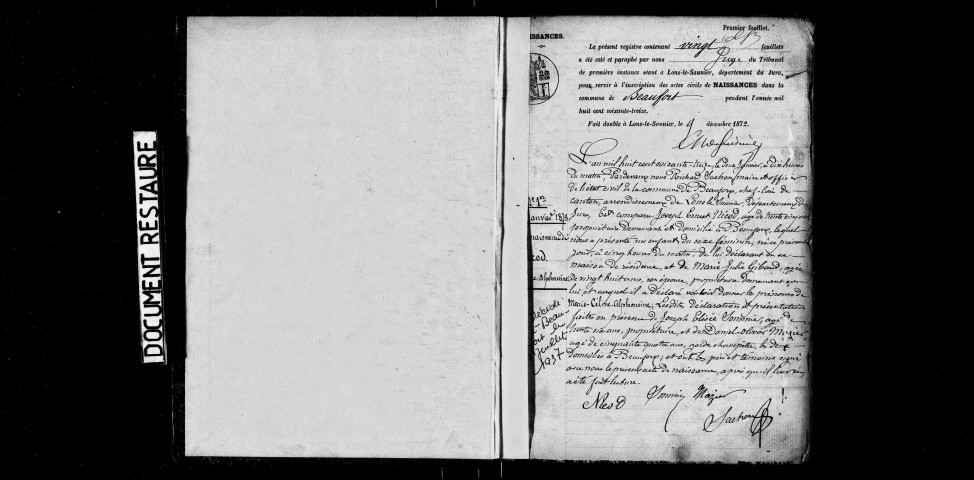 DOCUMENT RESTAURE
ISSANCES.
Premier feuillet.
Le présent registre contenant vingt feuillets
a été coté et paraphé par nous Juge du Tribunal
de première instance séant à Lons-le-Saunier, département du Jura,
pour servir à l'inscription des actes civils de NAISSANCES dans la
commune de Beaufort pendant l'année mil
huit cent soixante-treize.
Fait double à Lons-le-Saunier, le 9 décembre 1872.
L'an mil huit cent soixante-treize, le deux Janvier, à dix heures
du matin, Pardevant nous Richard maire et officier
de l'état civil de la commune de Beaufort, chef-lieu de
canton, arrondissement de Lons le Saunier, département du
Jura, Est comparu Joseph Ernest Nicod, âgé de trente cinq ans
propriétaire demeurant et domicilié à Beaufort, lequel
nous a présenté un enfant du sexe féminin, né ce présent
jour, à cinq heures du matin, de lui déclarant en sa
maison de résidence, et de Marie Julie Gibaud, agée
de vingt huit ans, son épouse, propriétaire demeurant avec
lui et auquel il a déclaré vouloir donner les prénoms de
Marie-Céline-Alphonsine, Lesdites déclaration et présentation
faites en présence de Joseph Elisée âgé de
trente six ans, propriétaire, et de Daniel-Olivier
agé de cinquante quatre ans, garde champêtre, les deux
domiciliés à Beaufort; et ont les père et témoins signé
avec nous le présent acte de naissance, après qu'il leur en
a été fait lecture.
Nicod
N° 1er
Janvier 1873
naissance de
icod,
e-Alphonsine
Décédée
à Beau-
fort le
Juillet
1937